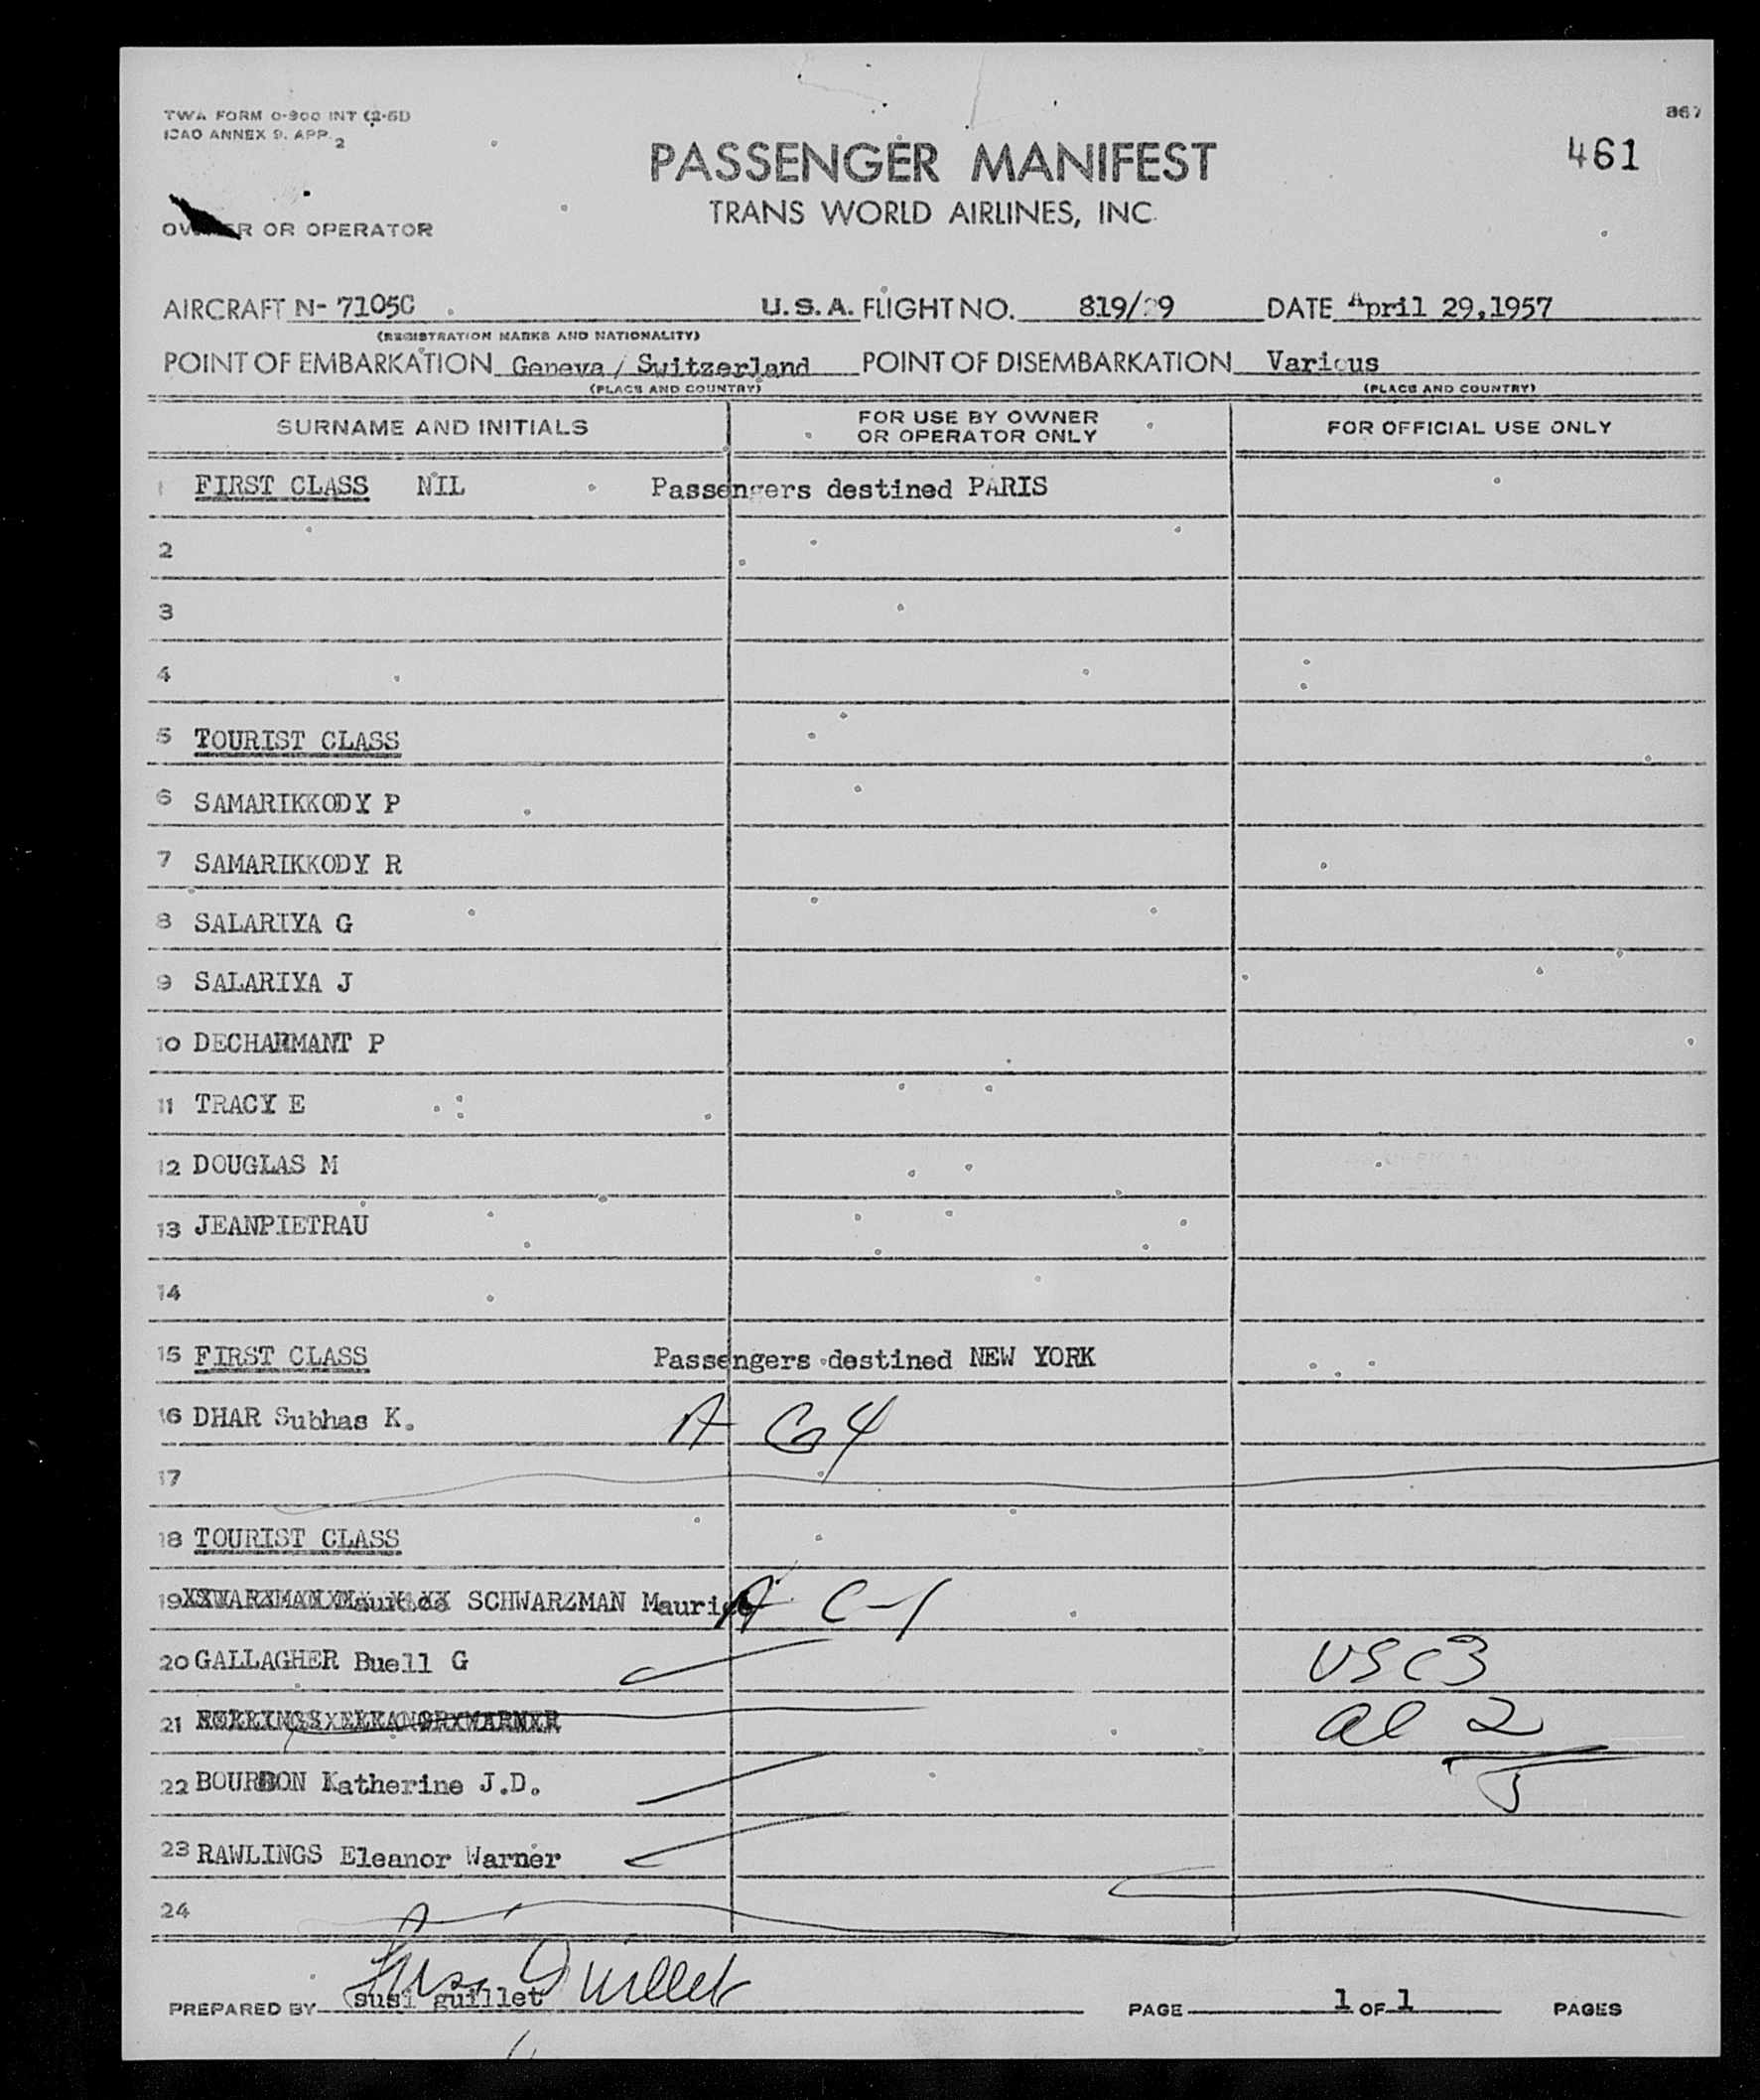 TWA FORM 0-900 INT (2-51)
ICAO ANNEX 9. APP. 2
867
461
PASSENGER MANIFEST
TRANS WORLD AIRLINES, INC.
OWNER OR OPERATOR
AIRCRAFT N- 7105C U.S.A. FLIGHT NO. 819/29 DATE April 29,1957
(REGISTRATION MARKS AND NATIONALITY)
POINT OF EMBARKATION Geneva / Switzerland POINT OF DISEMBARKATION Various
(PLACE AND COUNTRY) (PLACE AND COUNTRY)
SURNAME AND INITIALS FOR USE BY OWNER OR OPERATOR ONLY FOR OFFICIAL USE ONLY
1 FIRST CLASS NIL Passengers destined PARIS
2
3
4
5 TOURIST CLASS
6 SAMARIKKODY P
7 SAMARIKKODY R
8 SALARIYA G
9 SALARIYA J
10 DECHARMANT P
11 TRACY E
12 DOUGLAS M
13 JEANPIETRAU
14
15 FIRST CLASS Passengers destined NEW YORK
16 DHAR Subhas K. A G4
17
18 TOURIST CLASS
19 SCHWARZMAN Maurice A C-1
20 GALLAGHER Buell G USC3
21 al 2
22 BOURBON Katherine J.D. 5
23 RAWLINGS Eleanor Warner
24
Susi Guillet
PREPARED BY susi guillet PAGE 1 OF 1 PAGES